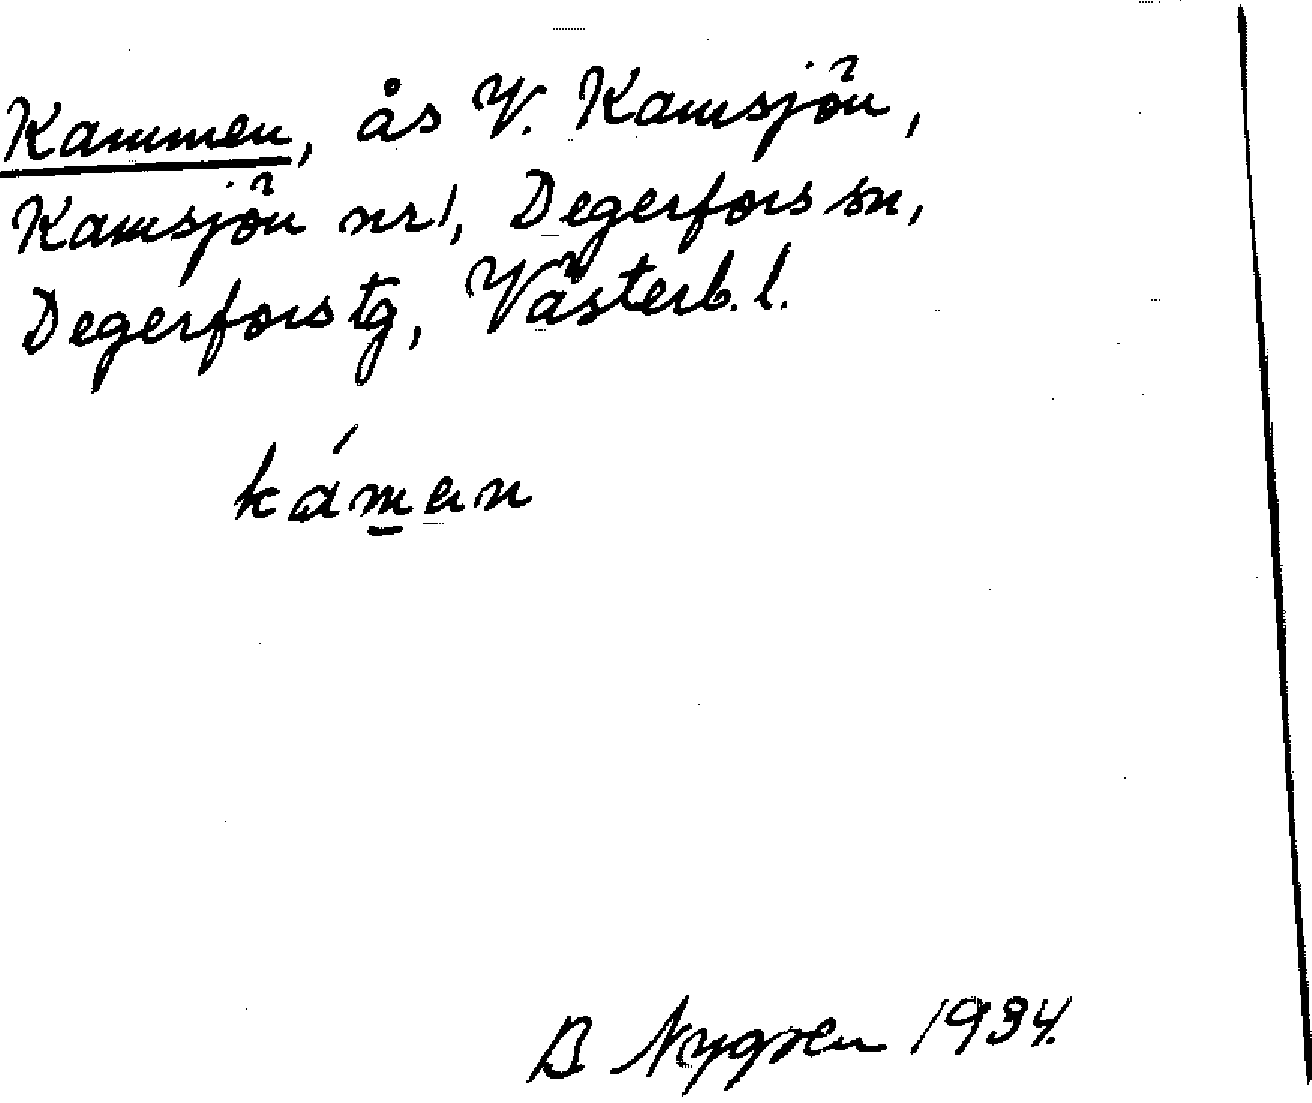 Kammen, ås V. Kamsjön,
Kamsjön nr 1, Degerfors sn,
Degerfors tg, Västerb. l.
káman
B Nygren 1934.